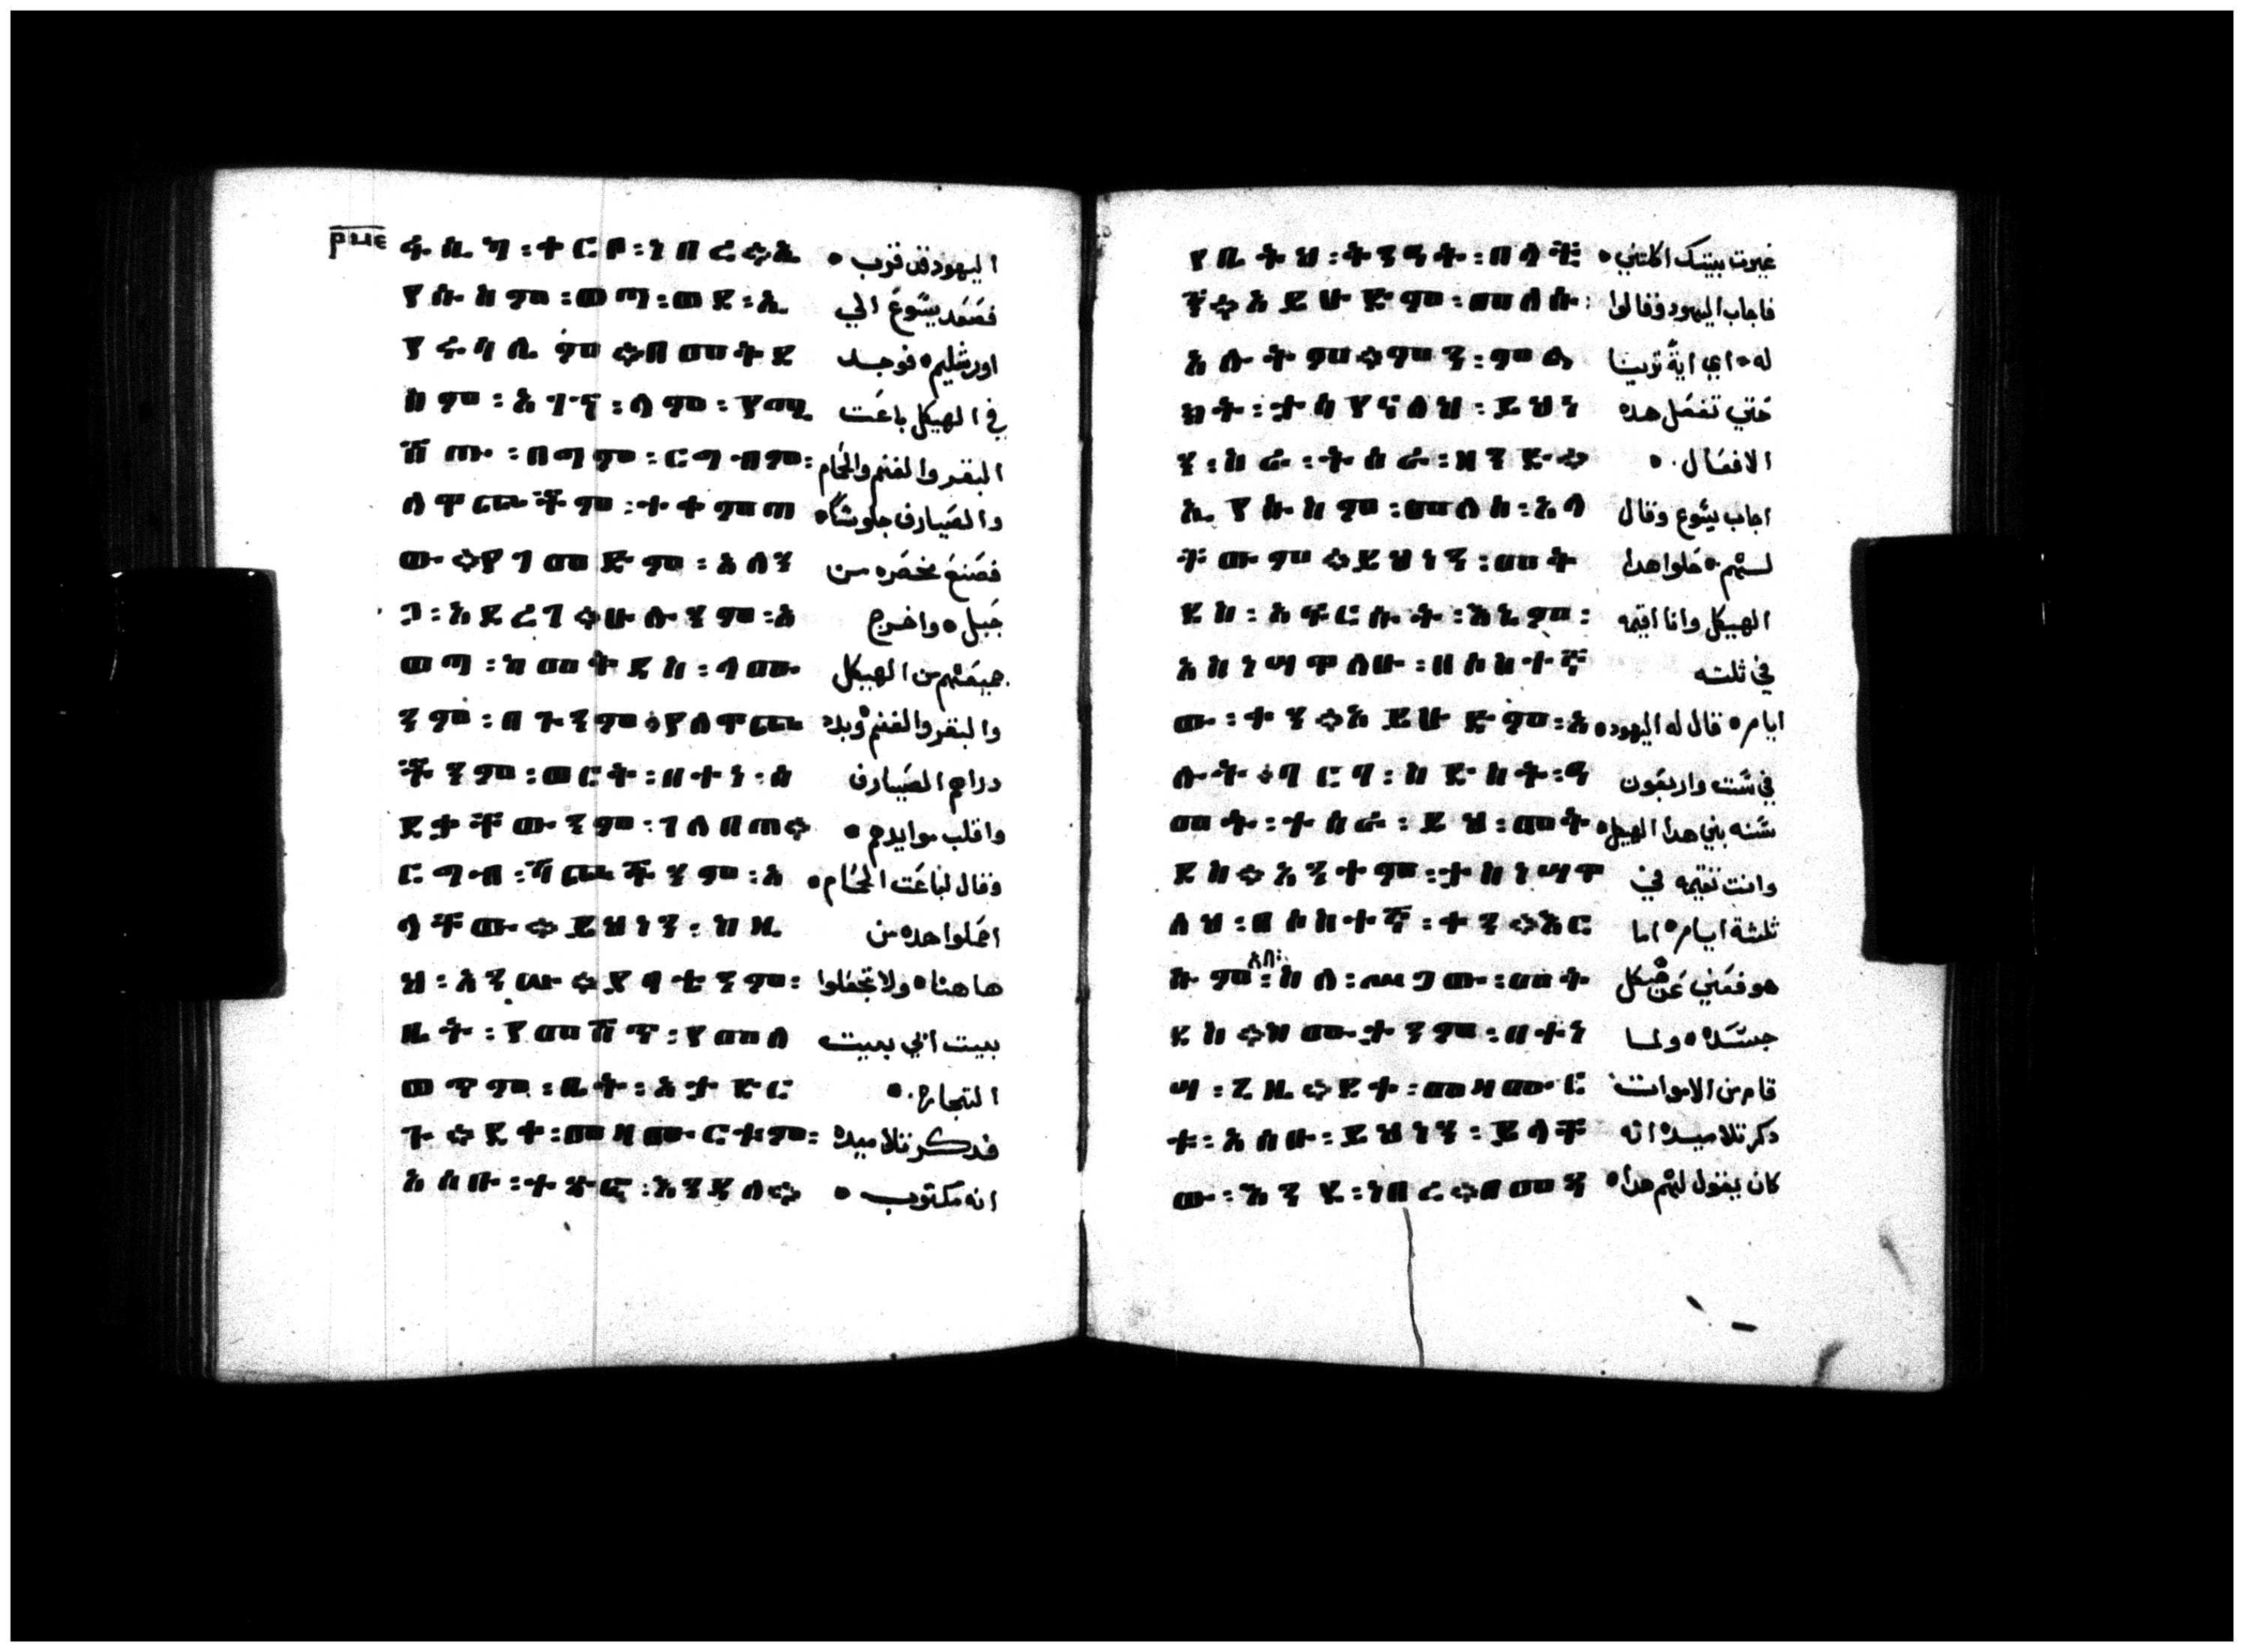 ፋሲጋ፡ቀርቦ፡ነበረ።ኢ اليهود قد قرب
የሱስም፡ወጣ፡ወደ፡ኢ فصعد يسوع الي
የሩሳሌም።በመቅደ اورشليم فوجد
ስም፡አገኘ፡ላም፡የሚ في الهيكل باعت
ሸጡ፡በጎም፡ርግብም፡ البقر والغنم والحمام
ለዋጮችም፡ተቀምጠ والصيارف جلوسا
ው።የገመድም፡አለን فصنع مخصره من
ጋ፡አደረገ።ሁሉንም፡አ حبل واخرج
ወጣ፡ከመቅደስ፡ላሙ جميعهم من الهيكل
ንም፡በጉንም።የለዋጮ والبقر والغنم وبدد
ችንም፡ወርቅ፡በተነ፡ሰ دراهم الصيارف
ደቃቸውንም፡ገለበጠ። واقلب موايدهم
ርግብ፡ሻጮችንም፡አ وقال لباعت الحمام
ላቸው።ይህነን፡ከዚ احملوا هده من
ህ፡አንሡ።ያባቴንም፡ هاهنا ولا تجعلوا
ቤት፡የመሸጥ፡የመለ بيت ابي بيت
ወጥም፡ቤት፡አታድር التجاره
ጉ።ደቀ፡መዛሙርቱም፡ فدكر تلاميده
አሰቡ፡ተጽፎ፡እንዲል። انه مكتوب
የቤትህ፡ቅንዓት፡በላች غيرت بيتك اكلتني
ኝ።አይሁድም፡መለሱ፡ فاجاب اليهود وقالوا
አሉትም።ምን፡ምል له اي اية ترينا
ክት፡ታሳየናለህ፡ይህነ حتي تفعل هده
ን፡ስራ፡ትሰራ፡ዘንድ። الافعال
ኢየሱስም፡መለሰ፡አላ اجاب يسوع وقال
ቸውም።ይህነን፡መቅ لهم حلوا هدا
ደስ፡አፍርሱት፡እኔም፡ الهيكل وانا اقيمه
አስነሣዋለሁ፡በሰስተኛ في ثلثه
ው፡ቀን።አይሁድም፡አ ايام قال له اليهود
ሉት፡ባርባ፡ስድስት፡ዓ في ست واربعون
መት፡ተሰራ፡ይህ፡መቅ سنه بني هدا الهيكل
ደስ።አንተም፡ታስነሣዋ وانت تقيمه في
ለህ፡በሰስተኛ፡ቀን።እር ثلثة ايام اما
ሱም፡አለ፡ስለ፡ሥጋው፡መቅ هو فعني عن هيكل
ደስ።ከሙታንም፡በተነ جسده ولما
ሣ፡ጊዜ።ደቀ፡መዛሙር قام من الاموات
ቱ፡አሰቡ፡ይህነን፡ይላቸ دكر تلاميده انه
ው፡እንዲ፡ነበረ። كان يقول لهم هدا